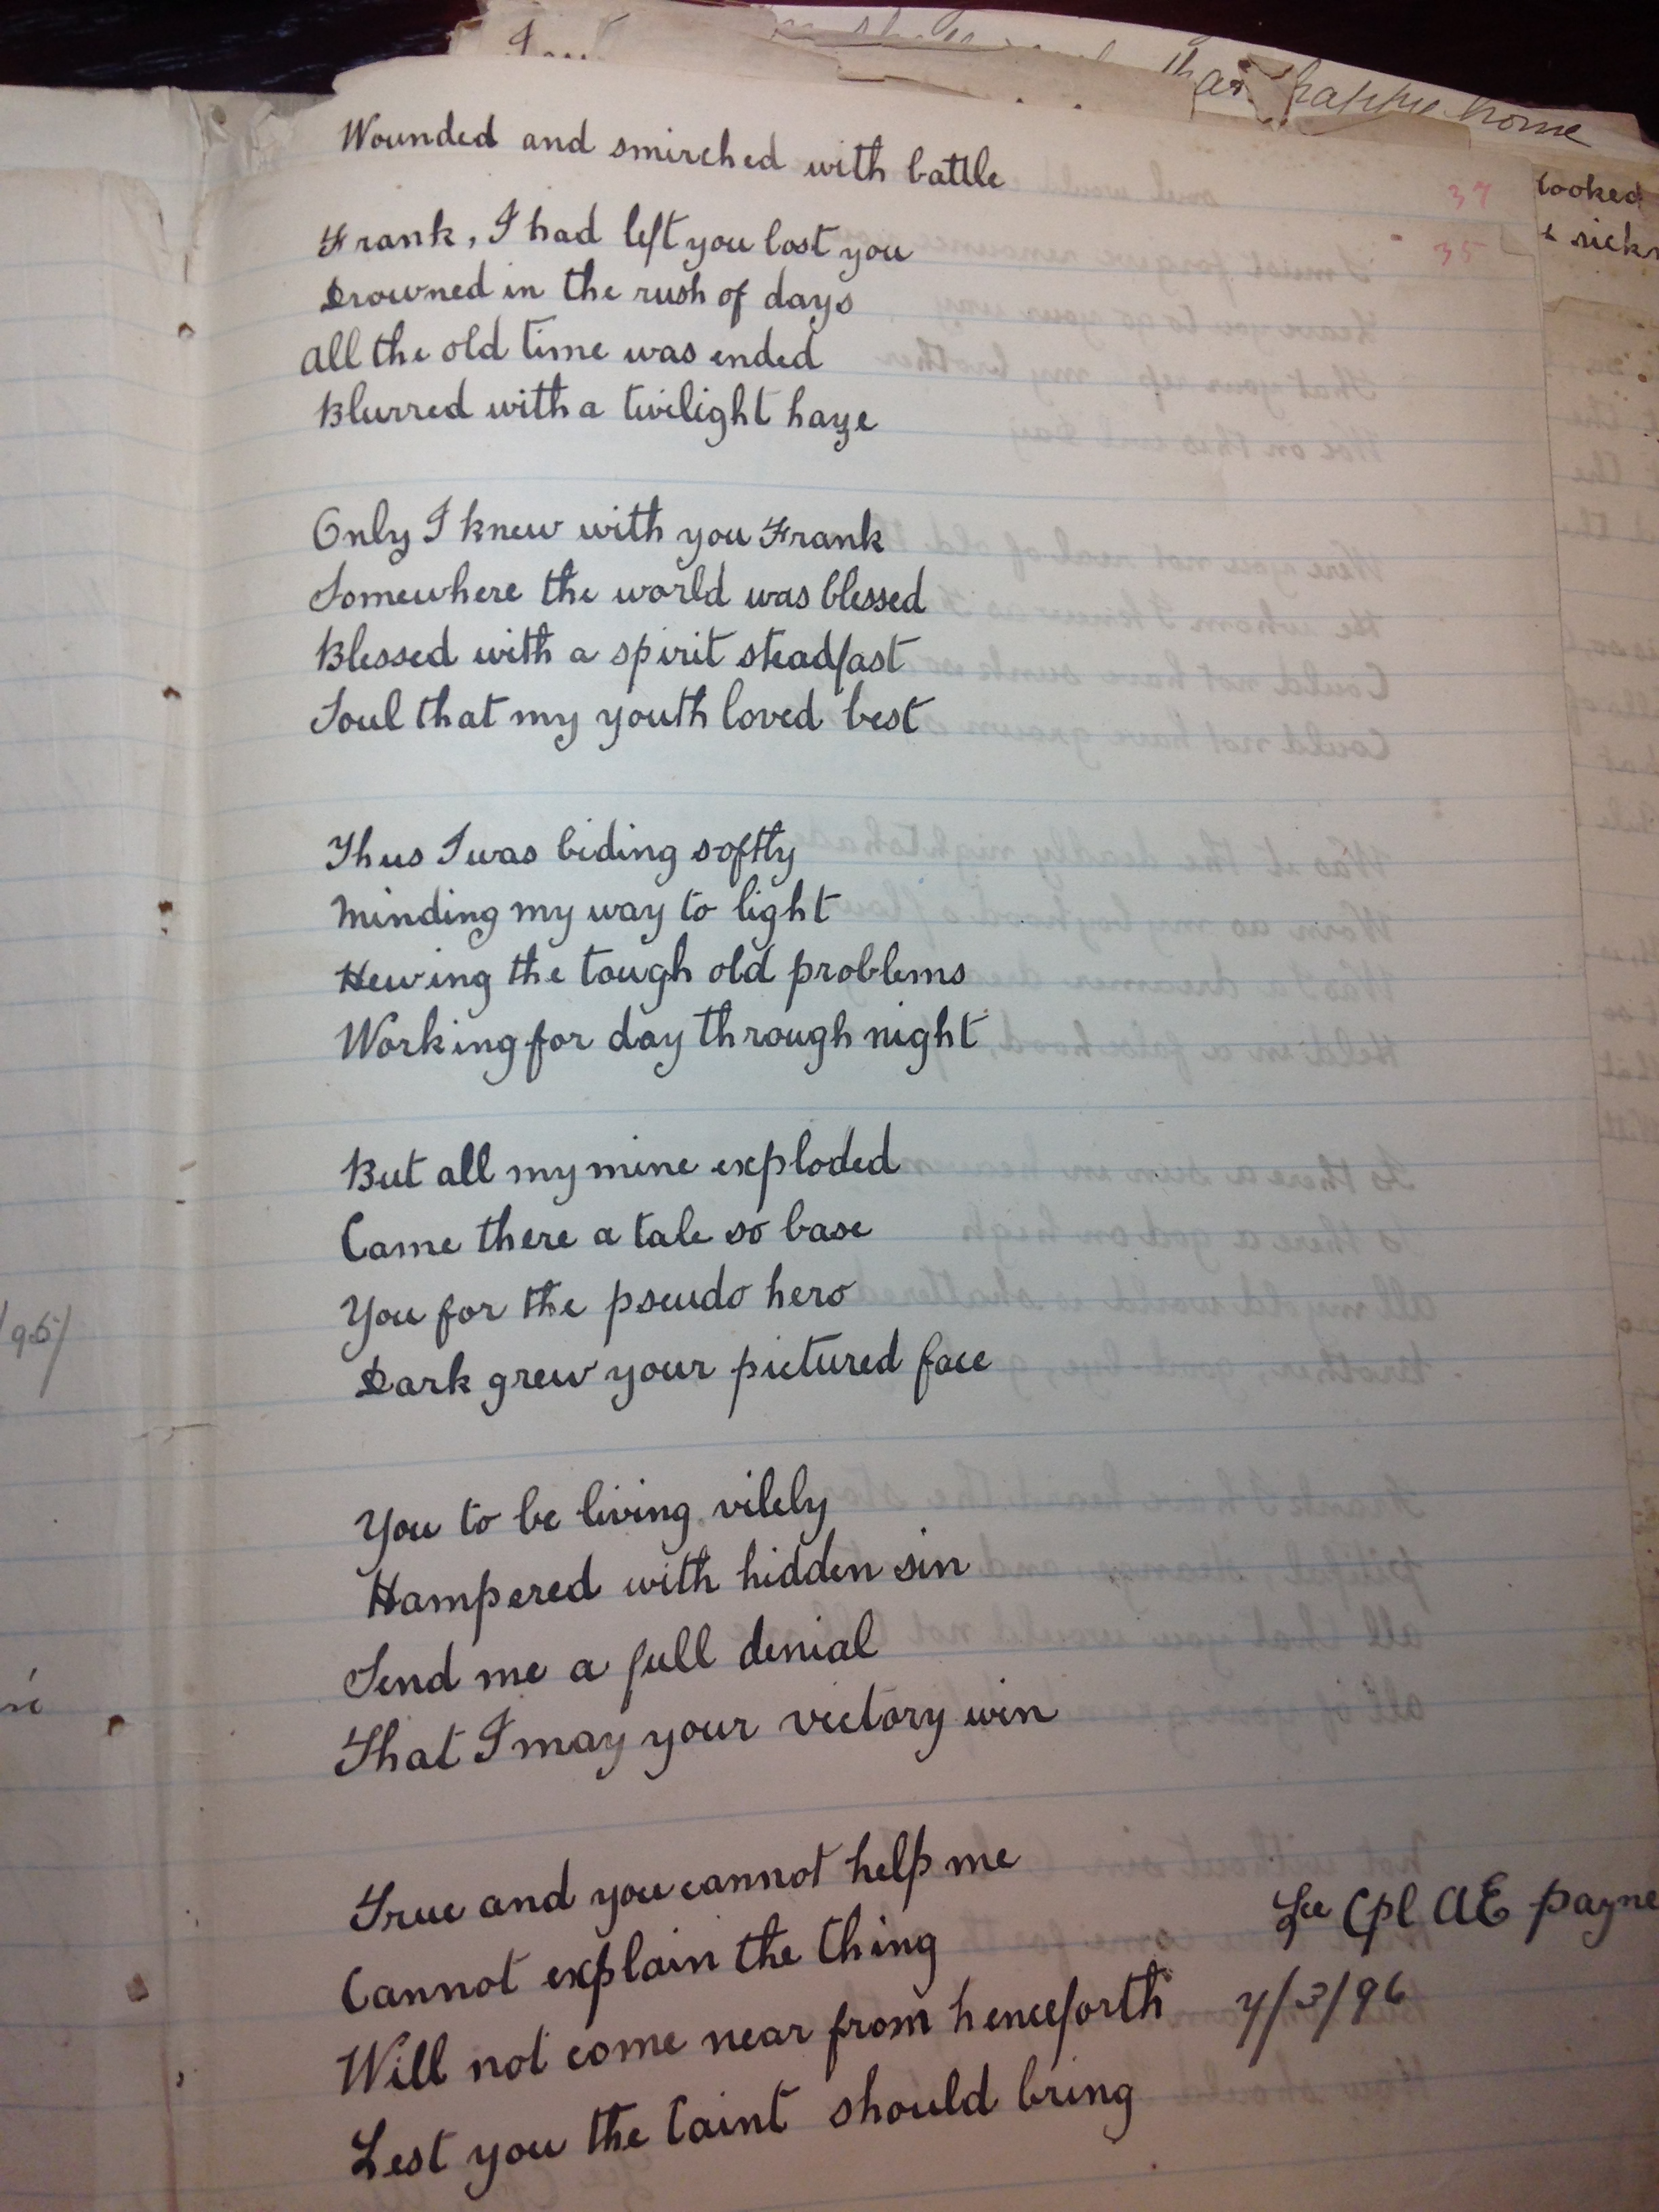 that happy home
looked
Wounded and smirched with battle
37
35
Frank, I had left you lost you
Drowned in the rush of days
all the old time was ended
Blurred with a twilight haze
Only I knew with you Frank
Somewhere the world was blessed
Blessed with a spirit steadfast
Soul that my youth loved best
Thus I was biding softly
Minding my way to light
Hewing the tough old problems
Working for day through night
But all my mine exploded
Came there a tale so base
You for the pseudo hero
Dark grew your pictured face
You to be living vilely
Hampered with hidden sin
Send me a full denial
That I may your victory win
True and you cannot help me
Cannot explain the thing
Will not come near from henceforth
Lest you the taint should bring
Lce Cpl AE Payne
7/3/96